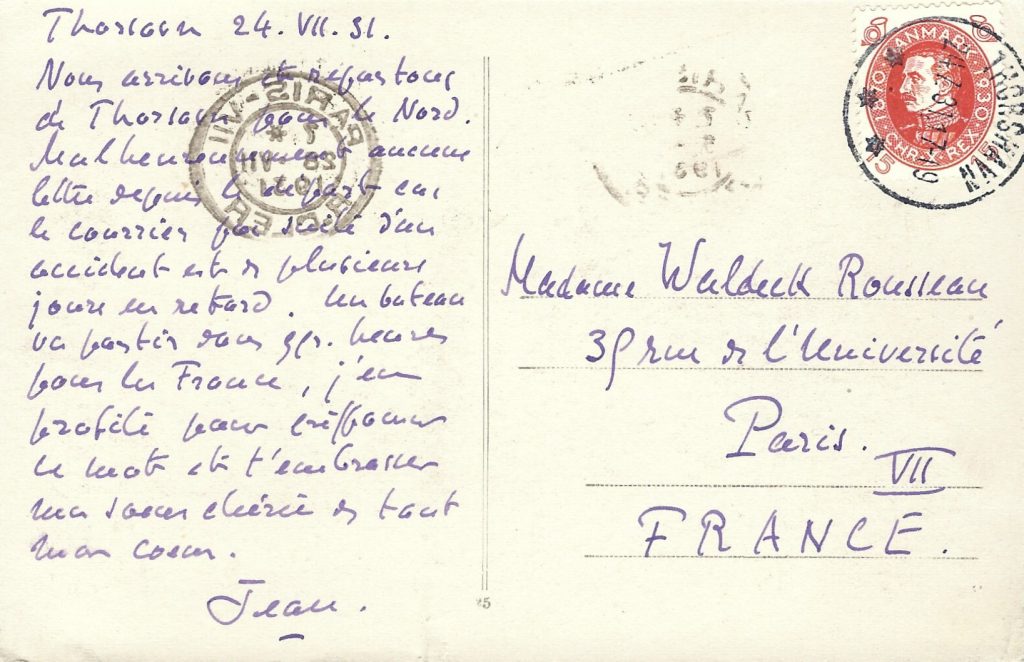 Thorsavn 24. VII. 31.
Nous arrivons et repartons
de Thorsavn pour le Nord.
Malheureusement aucune
lettre depuis le départ car
le courrier par suite d'un
accident est de plusieurs
jours en retard. Un bateau
va partir dans qqs. heures
pour la France, j'en
profite pour griffonner
ce mot et t'embrasser
ma soeur chérie de tout
mon coeur.
Jean.
DANMARK
1870 1930
CHR. X. REX
15
THORSHAVN
24.7.31.17-19
PARIS VII
1931
Madame Waldeck Rousseau
35 rue de l'Université
Paris.
VII
FRANCE.
25